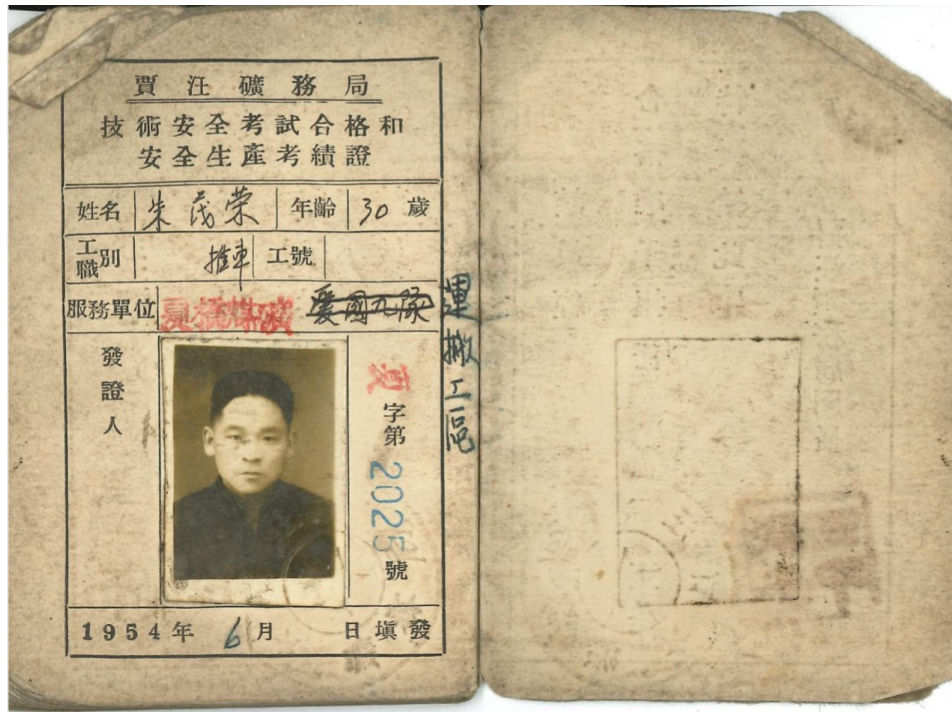 賈汪礦務局
技術安全考試合格和
安全生產考績證
姓名 朱茂荣 年齡 30 歲
工職別 推車 工號
服務單位 夏橋煤礦 爱國九隊 運搬工區
發證人
夏字第2025號
1954年6月 日填發